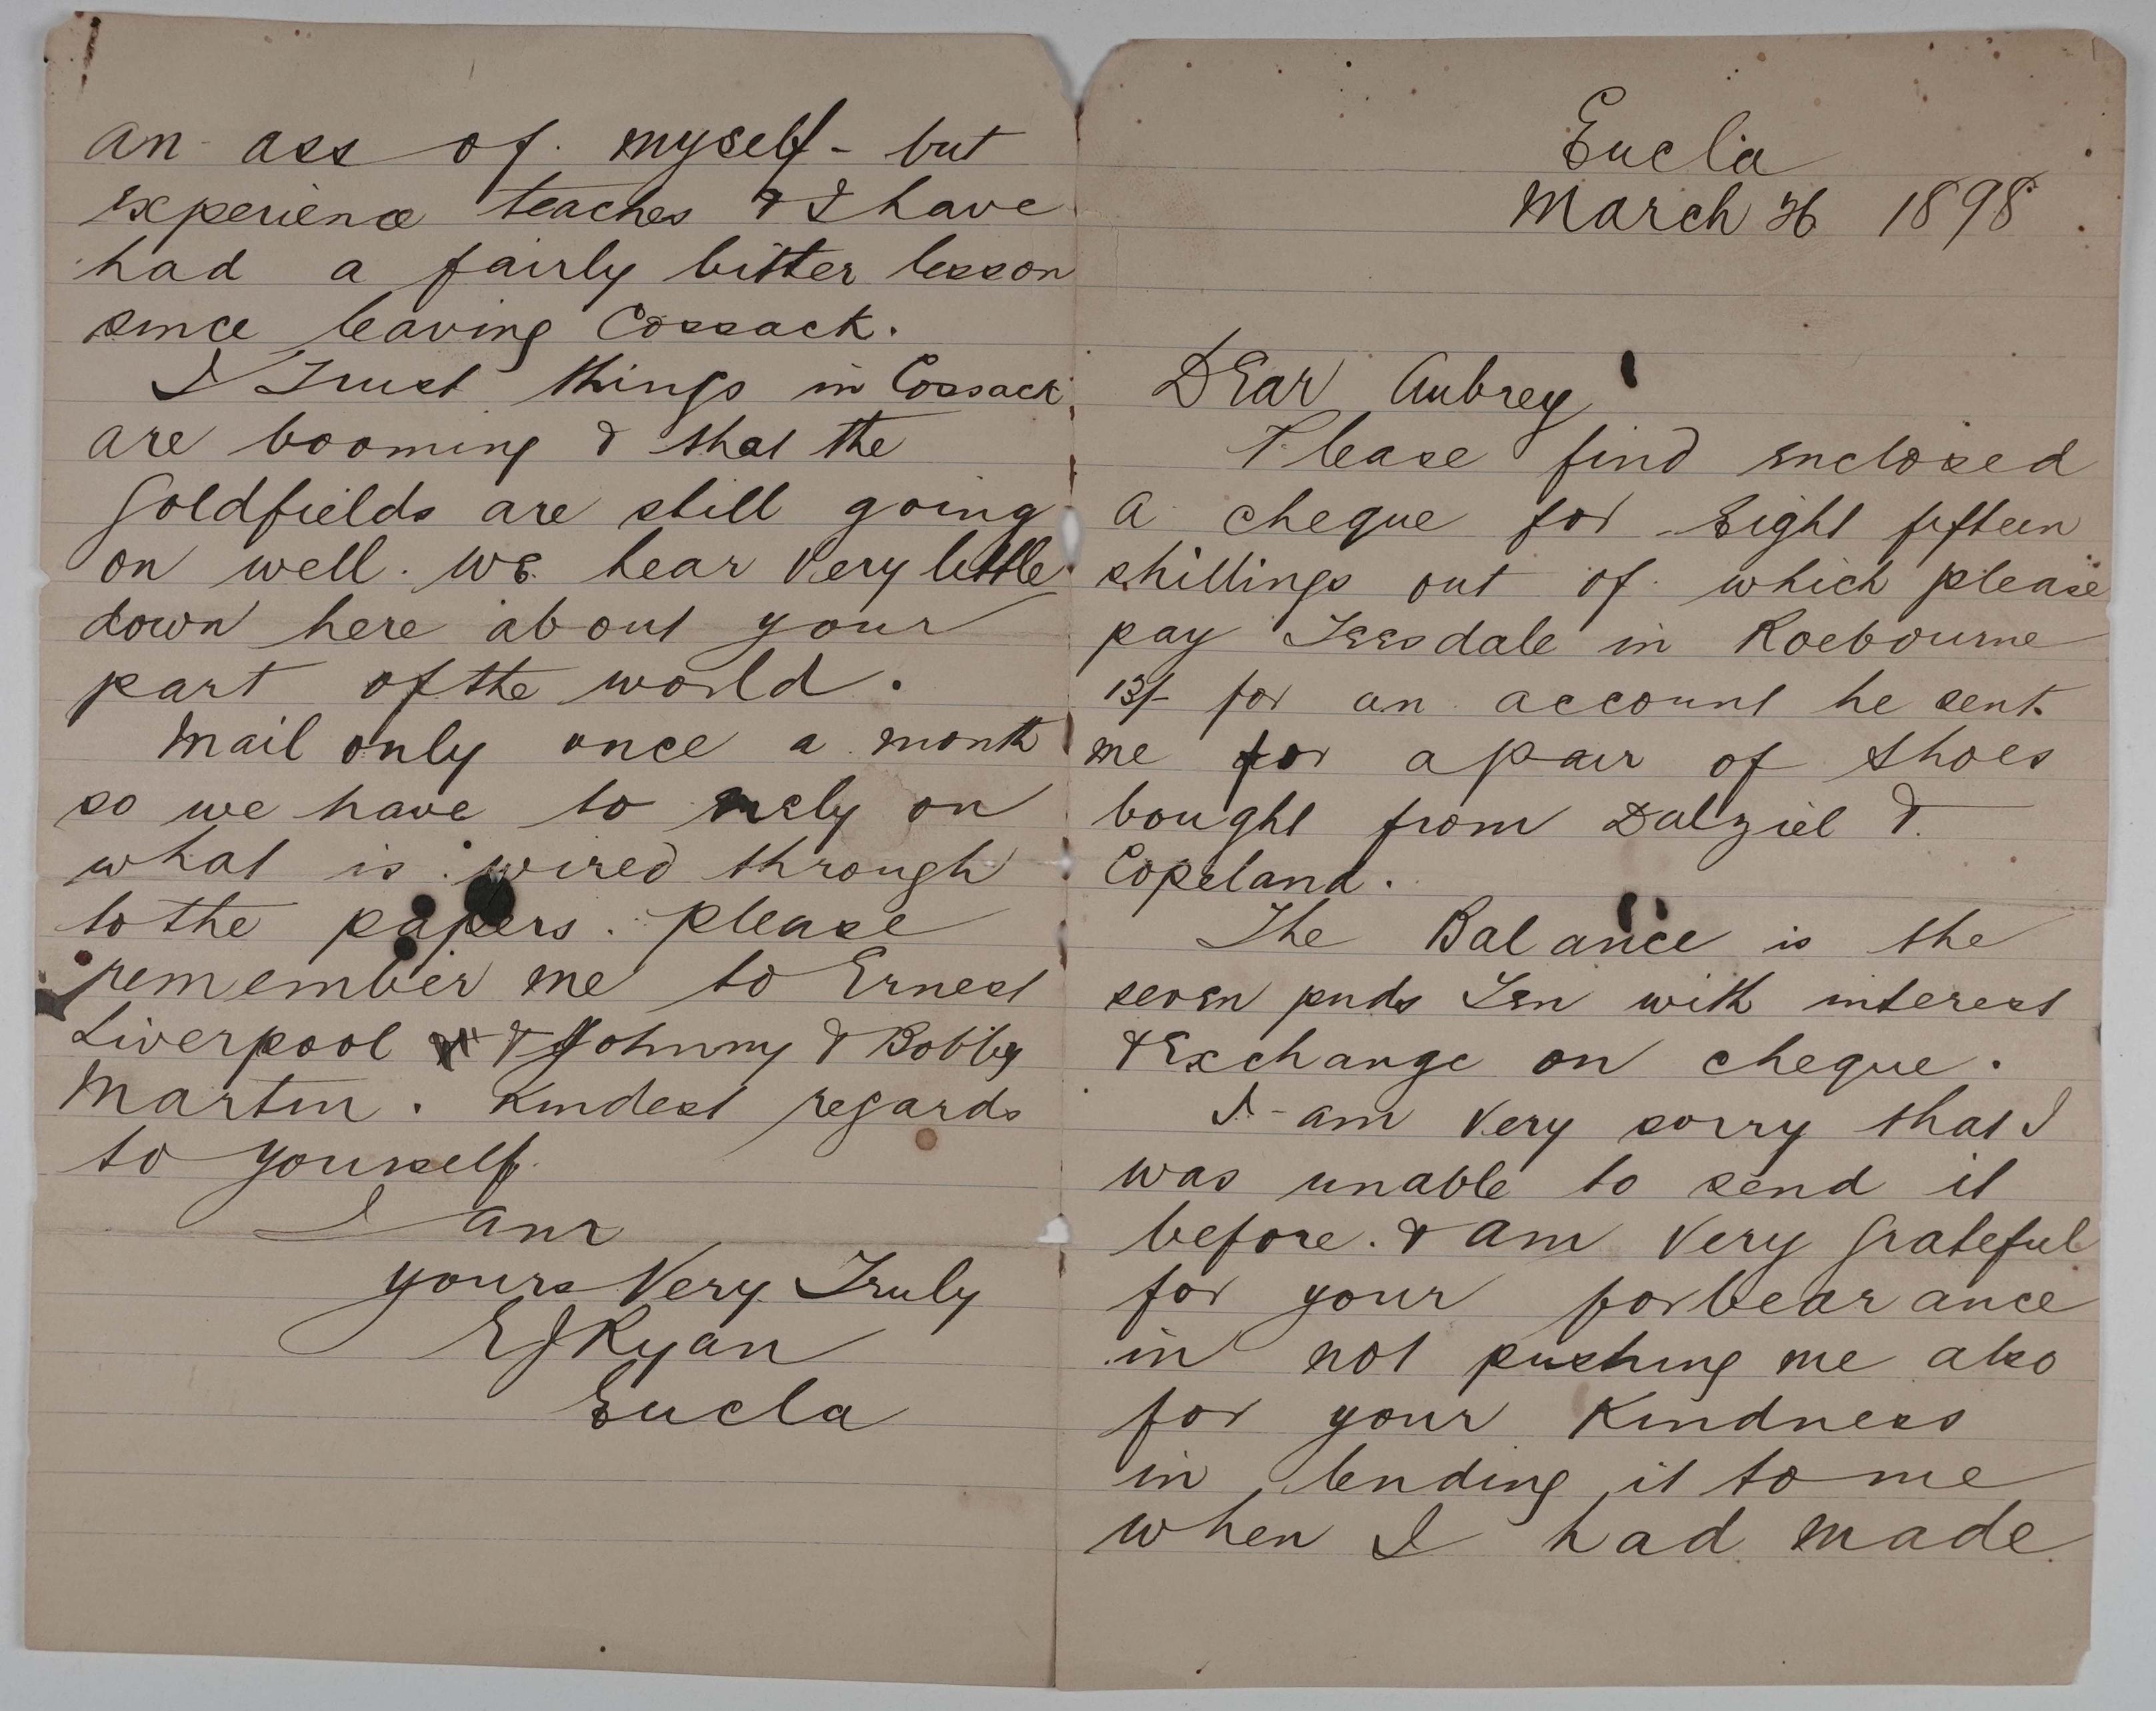 Eucla
March 26 1898
Dear Aubrey
Please find enclosed
a cheque for Eight fifteen
shillings out of which please
pay Teesdale in Roebourne
13/- for an account he sent
me for a pair of shoes
bought from Dalziel &
Copeland.
The Balance is the
seven pnds Ten with interest
& Exchange on cheque.
I am Very sorry that I
was unable to send it
before. & am Very Grateful
for your forbearance
in not pushing me also
for your Kindness
in lending it to me
when I had made
an ass of myself - but
Experience teaches & I have
had a fairly bitter lesson
since leaving Cossack.
I Trust things in Cossack
are booming & that the
Goldfields are still going
on well. We hear Very little
down here about your
part of the world.
Mail only once a month
so we have to rely on
what is wired through
to the papers. please
remember me to Ernest
Liverpool & Johnny & Bobby
Martin. Kindest regards
to yourself.
I am
yours Very Truly
EJ Ryan
Eucla